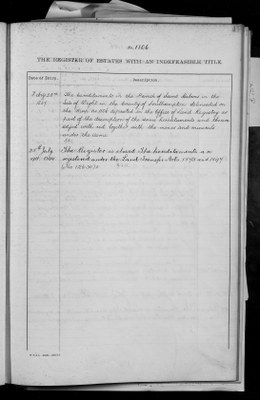 No. 1106
THE REGISTER OF ESTATES WITH AN INDEFEASIBLE TITLE.
Date of Entry. Description.
Feby 28th The hereditaments in the Parish of Saint Helens in the
Isle of Wight in the County of Southampton delineated on
the Map No. 1106 deposited in the Office of Land Registry as
part of the description of the same hereditaments and thereon
edged with red together with the mines and minerals
under the same
25th July The Register is closed. The hereditaments are
registered under the Land Transfer Acts 1875 and 1897